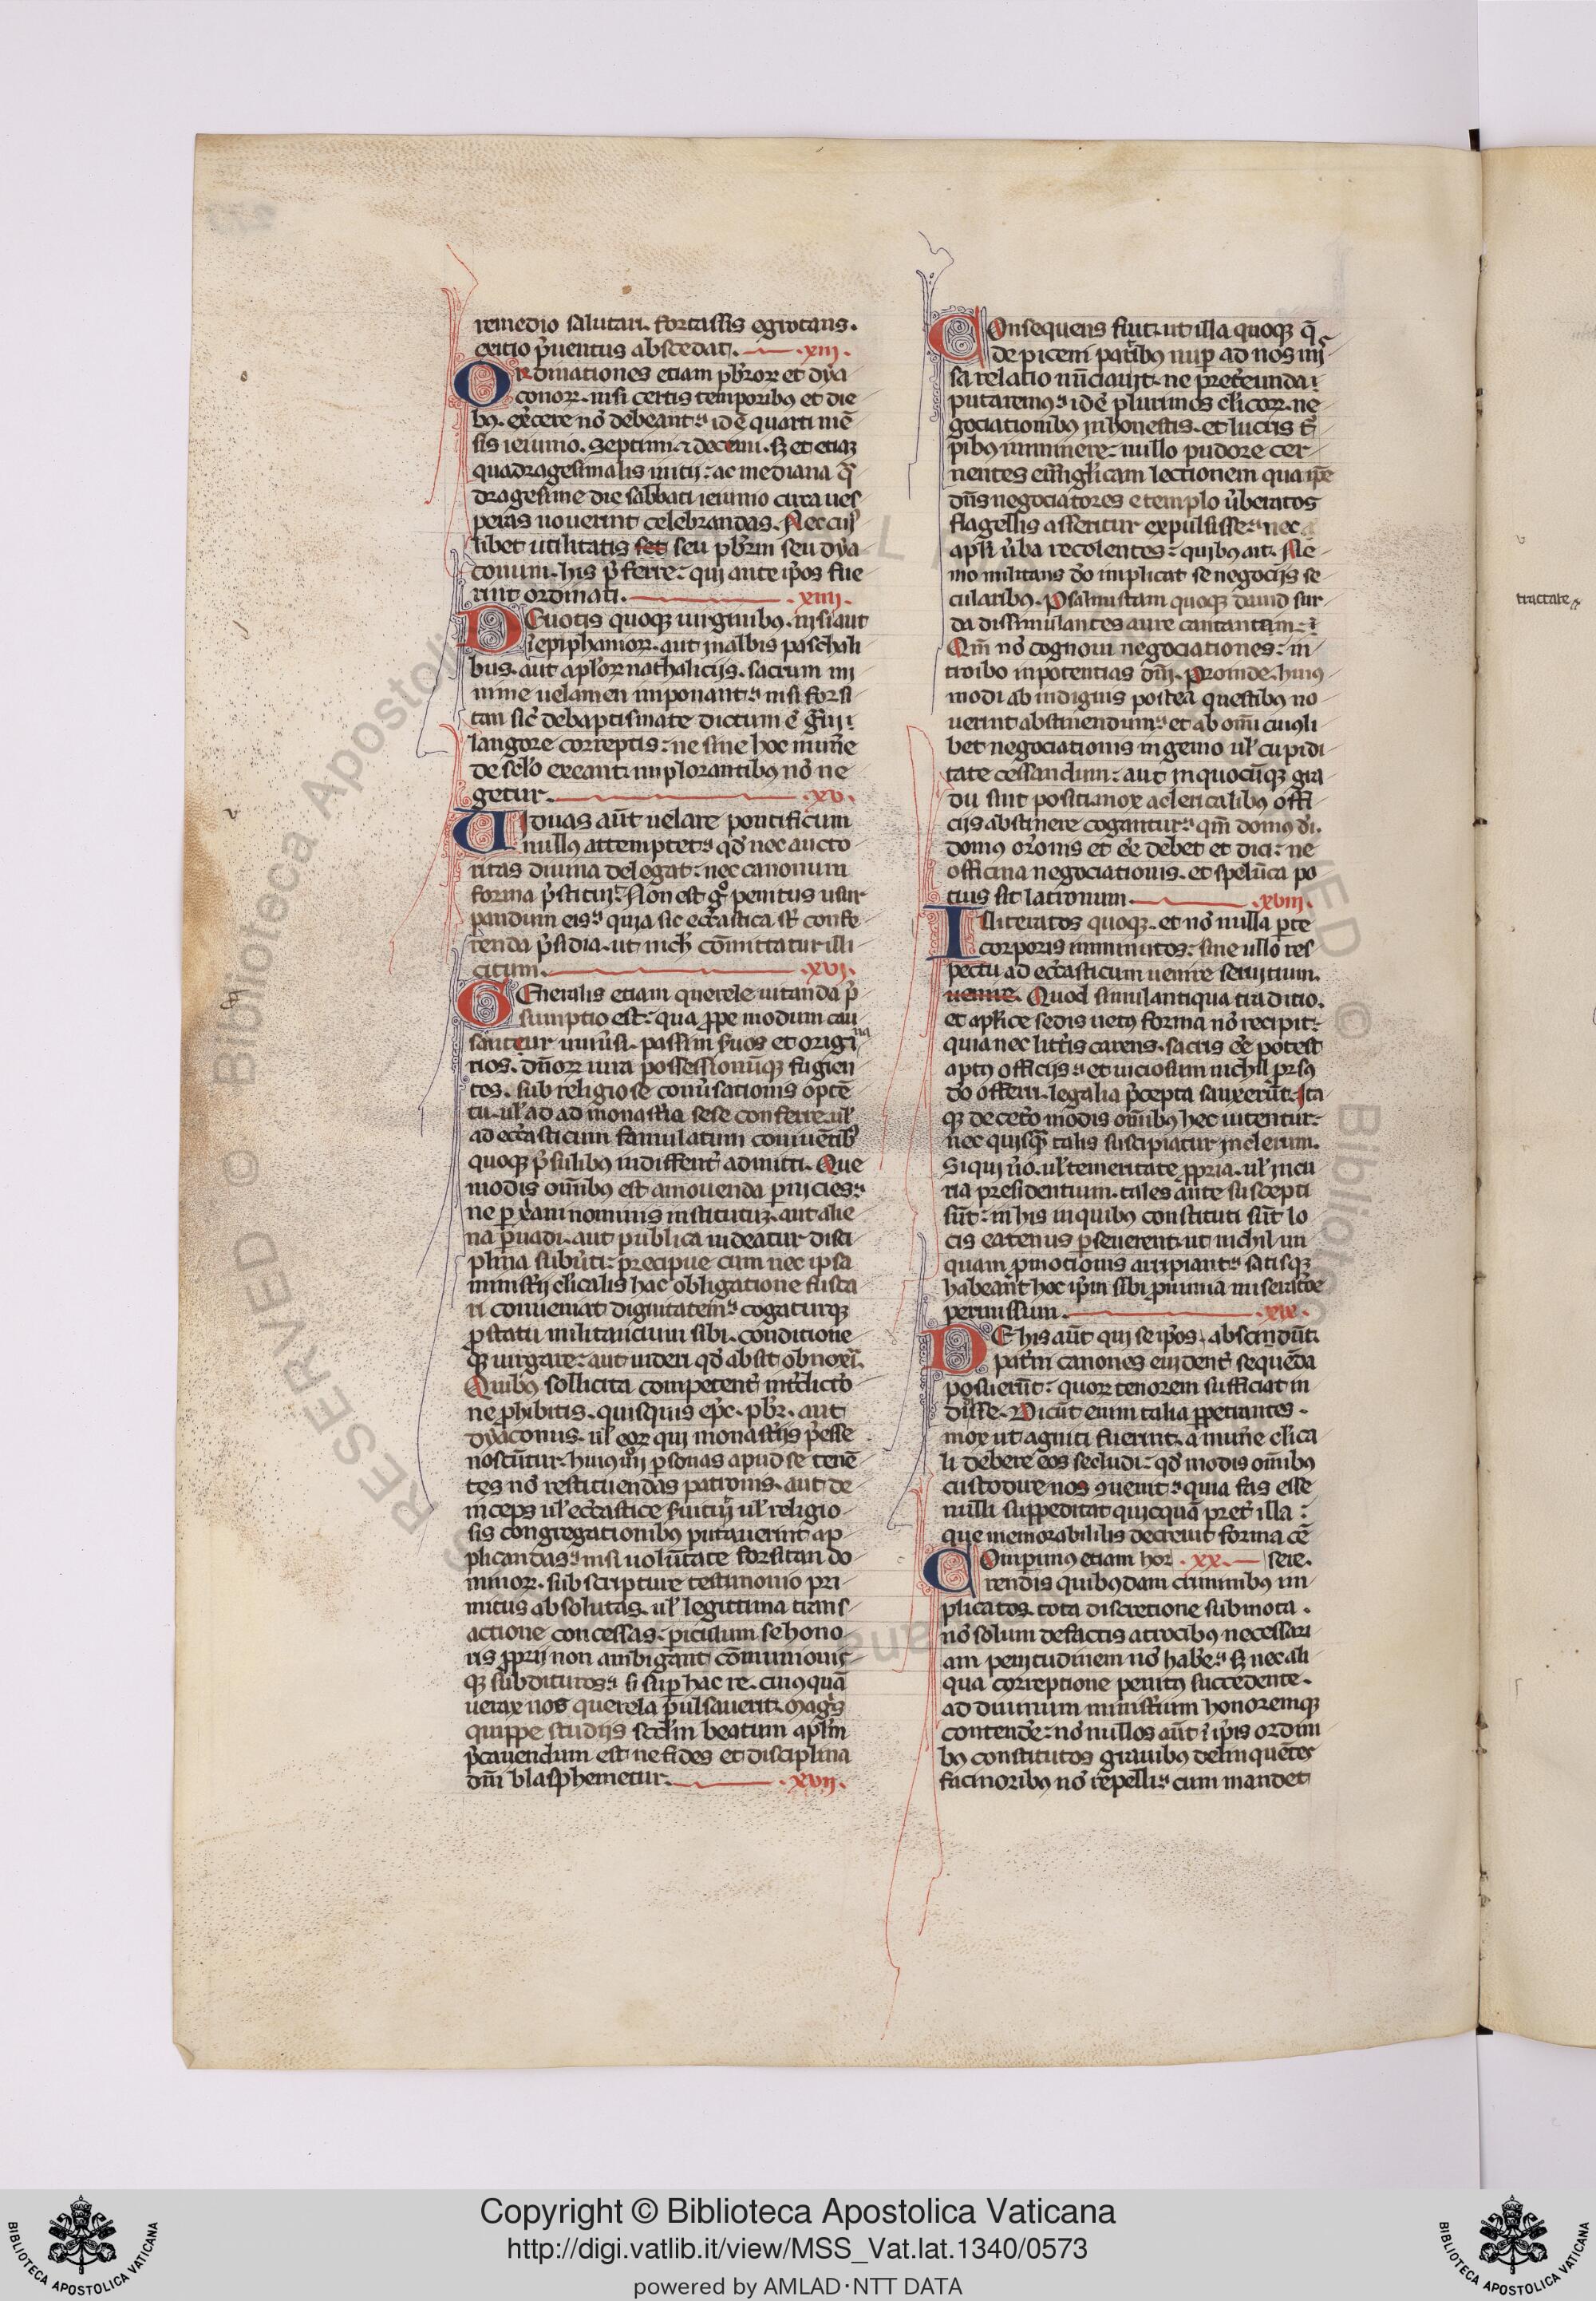 remedio salutari. fortassis egrotans.
certio p̃uentus abscedat. .xiii.
Ordinationes etiam pbr̃orꝝ et dya
conorꝝ. nisi certis temporibꝰ et die
bꝰ. ex̃cere nõ debeant. id ẽ quarti mẽ
sis ieiunio. septimi. ⁊ decimi. sꝫ et etiaꝫ
quadragesimalis initij: ac mediana q̃
dragesime die sabbati ieiunio circa ues
peras nouerint celebrandas. Nec cuiꝰ
libet utilitatis set seu pbr̃m seu dya
conum. his p̃ferre: qui ante ip̃os fue
rint ordinati. .xiiii.
Deuotis quoqꝫ uirginibꝰ. nisi aut
ĩ epiphaniorꝝ. aut in albis paschali
bus. aut apl̃orꝝ nathalicijs. sacrum mi
nime uelamen imponant: nisi forsi
tan sic̃ de baptismate dictum ẽ g̃ui
langore correptis: ne sine hoc mun̾e
de sclo exeant. implorantibꝰ nõ ne
getur. .xv.
Viduas aũt uelare pontificum
nullꝰ attemptet: qd̾ nec aucto
ritas diuina delegat: nec canonum
forma p̃stituit. Non est g̊ penitus usur
pandum eis: quia sic ecc̃astica st̃ confe
renda p̃sidia. ut nich̾ cõmittatur illi
citum. .xvi.
Generalis etiam querele uitanda p̃
sumptio est: qua ꝓpe modum cau
santur uniũsi. passim s̾uos et origi na
rios. dñorꝝ iura possessionũqꝫ fugien
tes. sub religiose conũsationis optẽ
tu. ul̃ ad ad monastr̃ia sese conferre. ul̃
ad ecc̃asticum famulatum coniuẽtibꝰ
quoqꝫ p̃sulibꝰ indiffent̾ admitti. Que
modis om̃ibꝰ est amouenda ꝑnicies:
ne ꝑ xp̃ani nominis institutuꝫ. aut alie
na ꝑuadi. aut publica uideatur disci
plina subũti: precipue cum nec ipsa
ministr̃ij clericalis hac obligatione fusca
ri conueniat dignitatem: cogaturqꝫ
ꝓ statu militancium sibi. conditione
qꝫ iurgare: aut uideri qd̾ absit obnoxi.
Quibꝰ sollicita competent̾ int̾dicto
ne ꝓhibitis. quisquis ep̃c. pbr̃. aut
dyaconus. ul̃ eorꝝ qui monastr̃ijs p̃esse
noscũtur: huiꝰmõi ꝑsonas apud se tenẽ
tes nõ restituendas patronis. aut de
inceps ul̃ ecc̃astice s̾uituti ul̃ religio
sis congregationibꝰ putauerint ap
plicandas: nisi uolũtate forsitan do
minorꝝ. sub scripture testimonio pri
mitus absolutas. ul̃ legitima trans
actione concessas: piculum se hono
ris ꝓprij non ambigant cõmunionis
qꝫ subdituros: si suꝑ hac re. cuiꝰquã
uerax nos querela pulsauerit. Magis
quippe studijs scd̃m beatum apl̃m
p̃cauendum est. ne fides et disciplina
dñi blasphemetur. .xvii.
Consequens fuit. ut illa quoqꝫ q̃
de piceni partibꝰ nuꝑ ad nos mi
sa relatio nũciauit. ne pretereunda
putaremꝰ: id ẽ plurimos cl̾icorꝝ. ne
gociationibꝰ inhonestis. et lucris tr̃
pibus imminere: nullo pudore cer
nentes euãngl̾icam lectionem qua ip̃e
dñs negociatores e templo ũberatos
flagellis asseritur expulsisse: nec
apl̃i ũba recolentes: quibꝰ ait. Ne
mo militans dõ implicat se negocijs se
cularibꝰ. Psalmistam quoqꝫ dauid sur
da dissimulantes aure cantantem:
Qm̃ nõ cognoui negociationes: in
troibo in potentias dñi. Proinde. huiꝰ
modi ab indignis postea questibꝰ no
uerint abstinendum: et ab om̃i cuiusli
bet negociationis ingenio ul̃ cupidi
tate cessandum: aut in quocũqꝫ gra
du sint positi. mox a clericalibꝰ offi
cijs abstinere cogantur: qm̃ domꝰ dĩ.
domꝰ or̃onis et ẽe debet et dici: ne
officina negociationis. et spelũca po
tius sit latronum. .xviii.
Illiteratos quoqꝫ. et nõ nulla ꝑte
corporis imminutos: sine ullo res
pectu ad ecc̃asticum uenire seruitium.
uenire. Quod simul antiqua traditio.
et apl̾ice sedis uetꝰ forma nõ recipit:
quia nec litt̾is carens. sacris ẽe potest
aptꝰ officijs: et uiciosum nichil prsꝰ
dõ offerri. legalia p̃cepta sanxerũt. Ita
qꝫ de cet̾o modis om̃ibꝰ hec uitentur:
nec quisq̃ talis suscipiatur in clerum.
Si qui ũo. ul̃ temeritate ꝓpria. ul̃ incu
ria presidentium. tales ante suscepti
sũt: in his in quibꝰ constituti sũt lo
cis eatenus ꝑseuerent. ut nichil un
quam ꝓmotionis arripiant: satisqꝫ
habeant hoc ip̃m sibi ꝓ nimia miseratõe
permissum. .xix.
De his aũt qui se ip̃os. abscindũt.
patr̃m canones euident̾ sequẽda
posuerũt: quorꝝ tenorem sufficiat in
didisse. Dicũt enim talia ꝑpetrantes.
mox ut agniti fuerint. a mun̾e clica
li debere eos secludi: qd̾ modis om̃ibꝰ
custodire nos ꝯuenit: quia fas esse
nulli suppeditat quicquã pret̾ illa
que memorabililis decreuit forma cẽ
Comperimꝰ etiam hor .xx. sere.
rendis quibꝰdam criminibꝰ im
plicatos. tota discretione submota.
nõ solum de factis atrocibꝰ necessari
am penitudinem nõ habe: sꝫ nec ali
qua correptione penitꝰ succedente.
ad diuinum ministr̃ium honoremqꝫ
contende: nõ nullos aũt ĩ ip̃is ordini
bꝰ constitutos grauibꝰ delinquẽtes
facinoribꝰ nõ repelli: cum mandet
tractare
Copyright © Biblioteca Apostolica Vaticana
http://digi.vatlib.it/view/MSS_Vat.lat.1340/0573
powered by AMLAD·NTT DATA
BIBLIOTECA APOSTOLICA VATICANA
BIBLIOTECA APOSTOLICA VATICANA